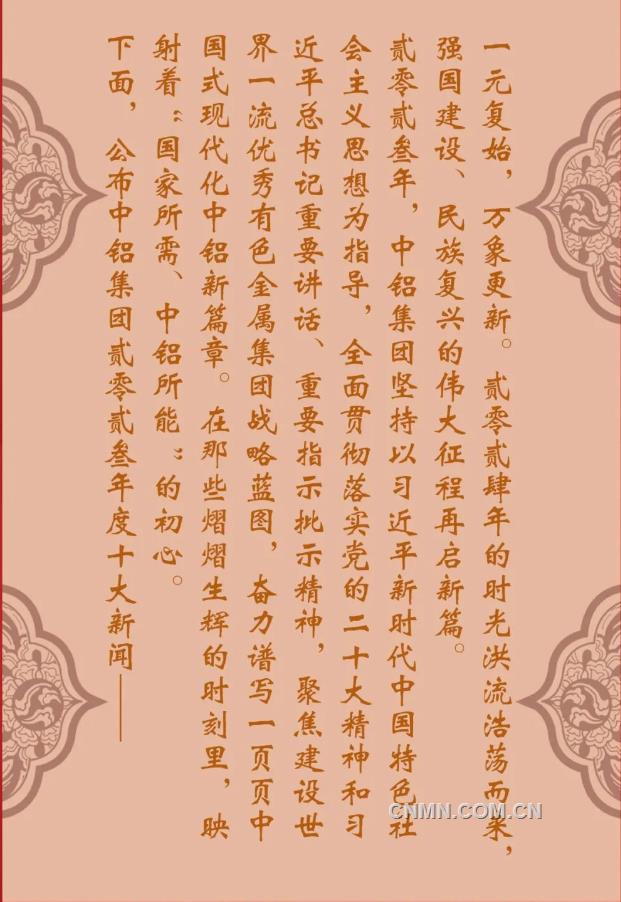 一元复始，万象更新。贰零贰肆年的时光洪流浩荡而来，
强国建设、民族复兴的伟大征程再启新篇。
贰零贰叁年，中铝集团坚持以习近平新时代中国特色社
会主义思想为指导，全面贯彻落实党的二十大精神和习
近平总书记重要讲话、重要指示批示精神，聚焦建设世
界一流优秀有色金属集团战略蓝图，奋力谱写一页页中
国式现代化中铝新篇章。在那些熠熠生辉的时刻里，映
射着“国家所需、中铝所能”的初心。
下面，公布中铝集团贰零贰叁年度十大新闻——
CNMN.COM.CN